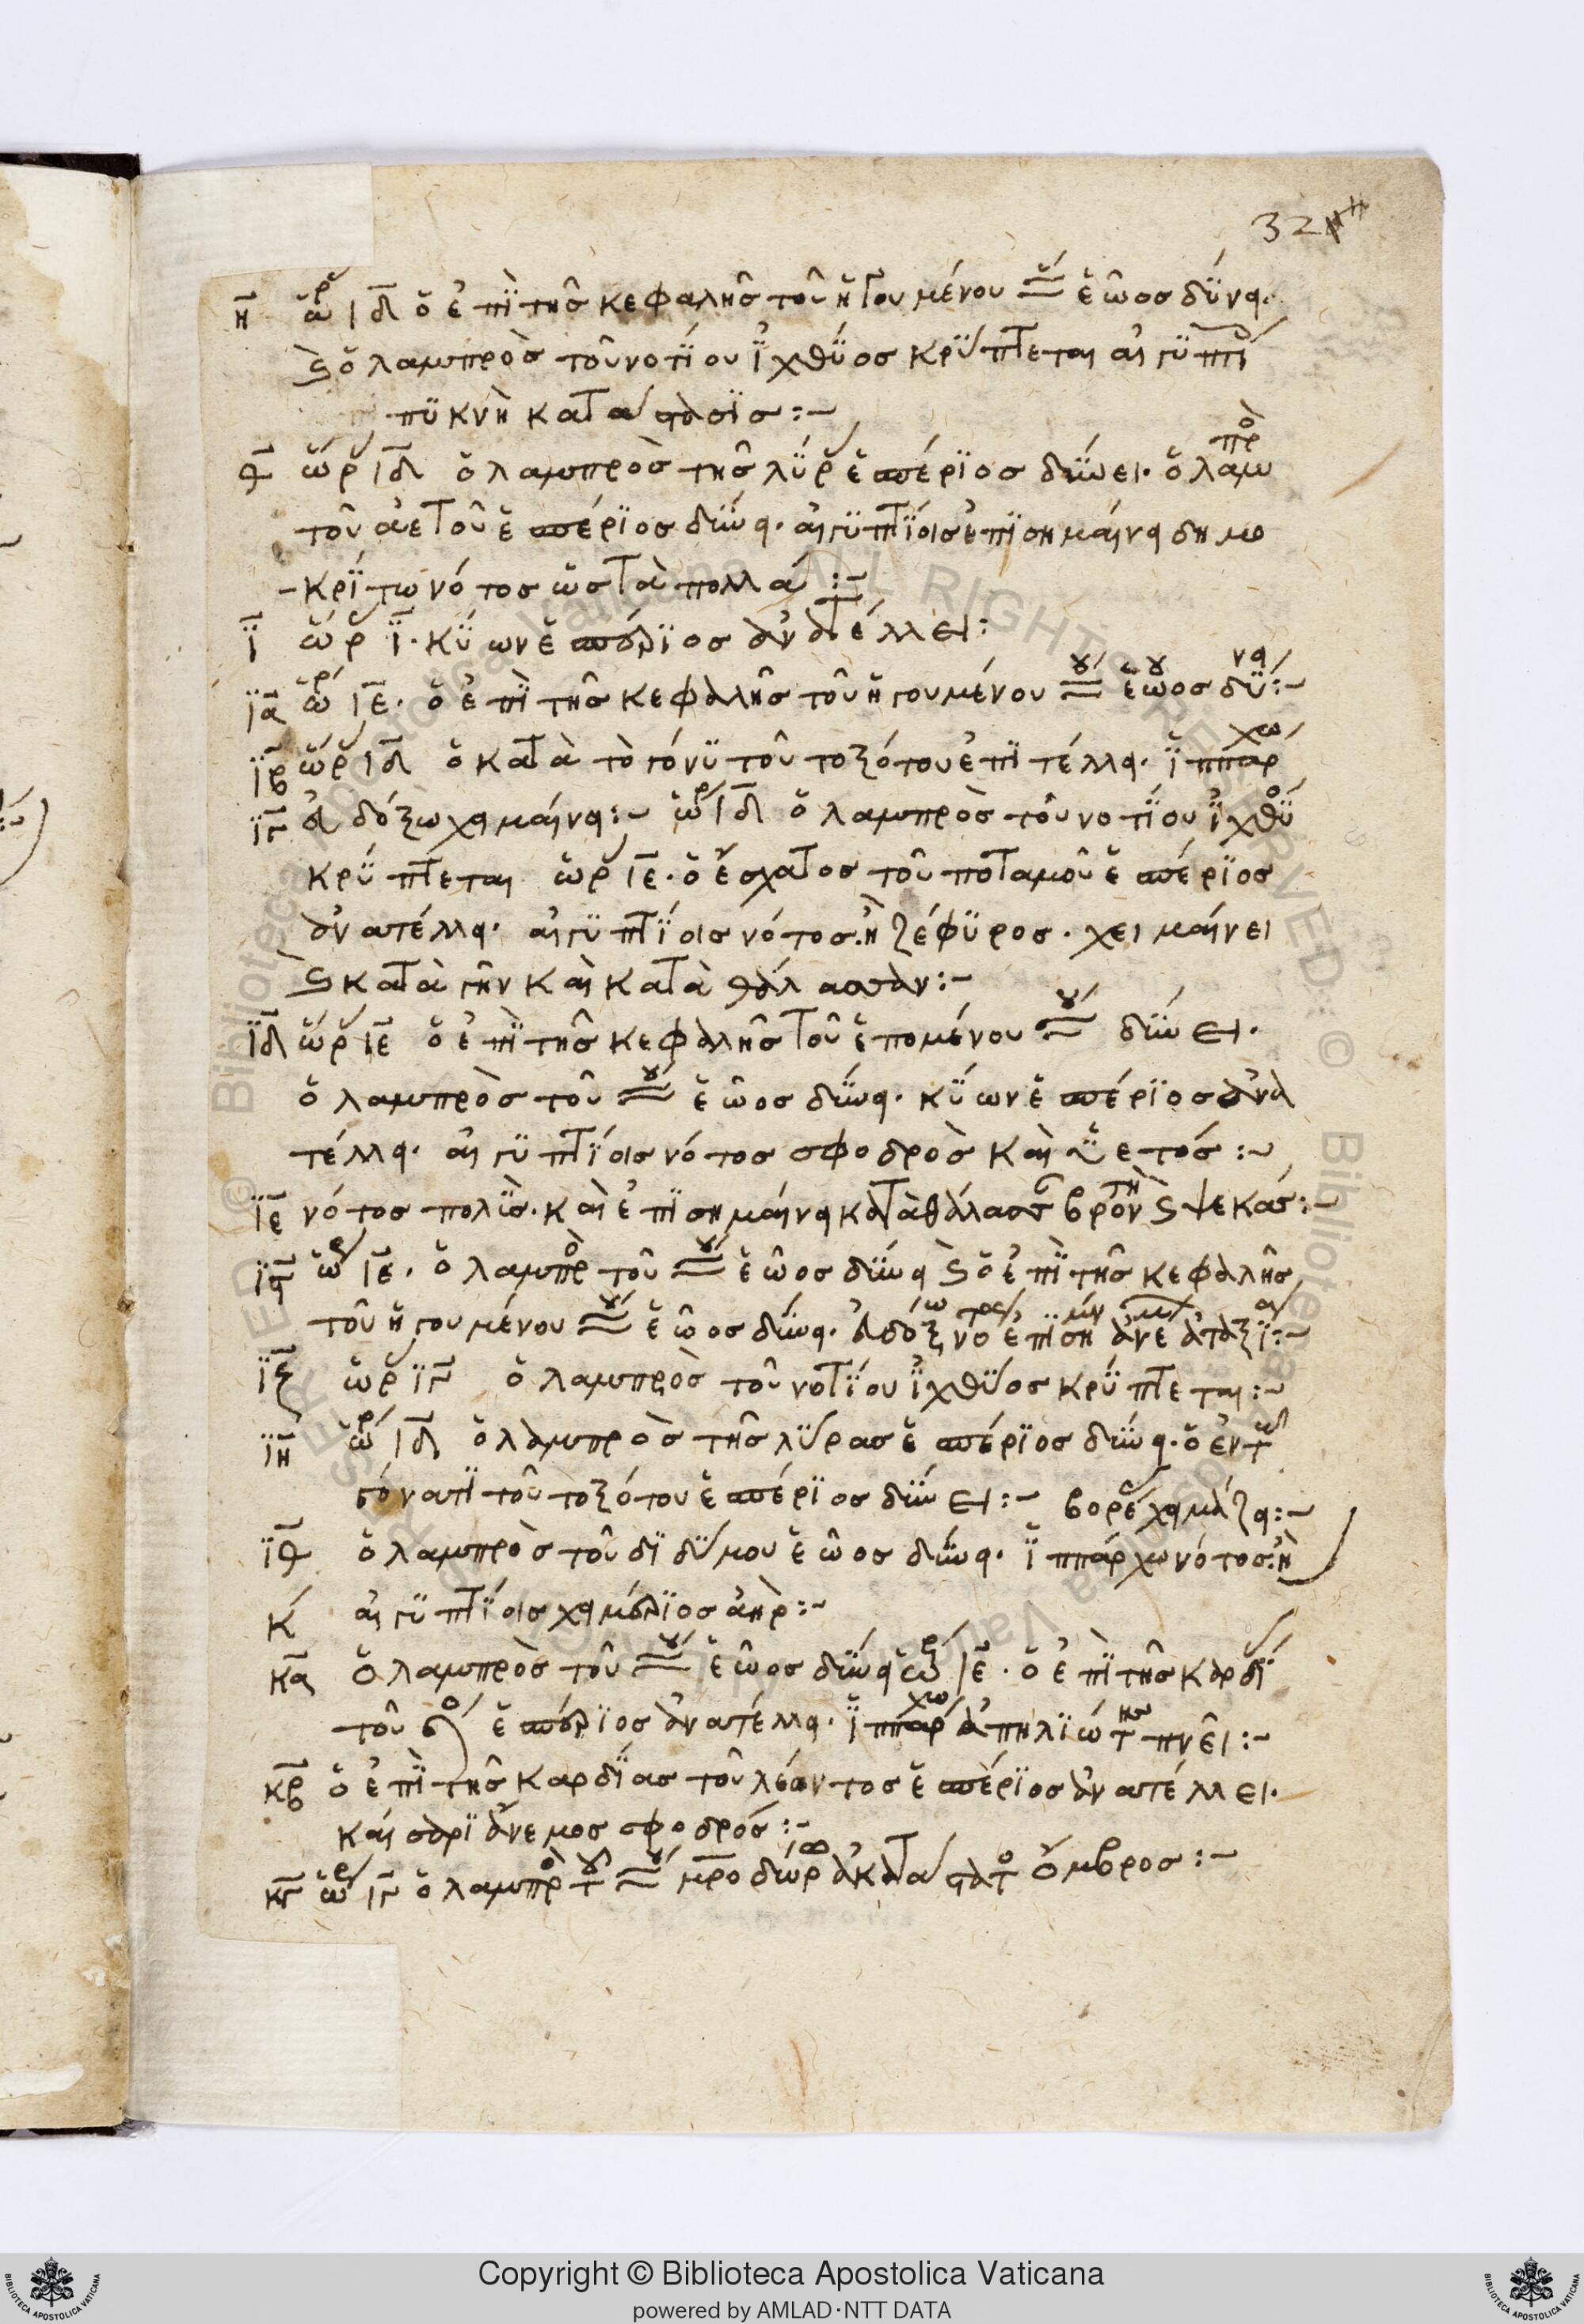 32
η ὥρ ιδ ὁ ἐπὶ τῆς κεφαλῆς τοῦ ἡγουμένου ἑῶος δύνει.
ὁ λαμπρὸς τοῦ νοτίου ἰχθύος κρύπτεται αἰγυπτί
πυκνὴ κατάστασις :~
θ ὥρ ιδ ὁ λαμπρὸς τῆς λύρ ἑσπέριος δύνει. ὁ λαμπρὸ
τοῦ ἀετοῦ ἑσπέριος δύνει. αἰγυπτίοις ἐπισημαίνει δημο
-κρίτω νότος ὡς τὰ πολλά :~
ι ὥρ ι. κύων ἑσπέριος ἀνατέλλει:
ια ὥρ ιε. ὁ ἐπὶ τῆς κεφαλῆς τοῦ ἡγουμένου ἑῶος δύνει :~
ιβ ὥρ ιδ ὁ κατὰ τὸ γόνυ τοῦ τοξότου ἐπιτέλλει. ἱππάρχω
ιγ εὐδόξω χειμαίνει :~ ὥρ ιδ ὁ λαμπρὸς τοῦ νοτίου ἰχθύο
κρύπτεται ὥρ ιε. ὁ ἔσχατος τοῦ ποταμοῦ ἑσπέριος
ἀνατέλλει. αἰγυπτίοις νότος ἢ ζέφυρος. χειμαίνει
κατὰ γῆν καὶ κατὰ θάλασσαν :~
ιδ ὥρ ιε ὁ ἐπὶ τῆς κεφαλῆς τοῦ ἑπομένου δύνει.
ὁ λαμπρὸς τοῦ ἑῶος δύνει. κύων ἑσπέριος ἀνα
τέλλει. αἰγυπτίοις νότος σφοδρὸς καὶ ὑετός :~
ιε νότος πολύς. καὶ ἐπισημαίνει κατὰ θάλασσ βροντὴ ψεκάς :~
ιϛ ὥρ ιε. ὁ λαμπρὸ τοῦ ἑῶος δύνει ὁ ἐπὶ τῆς κεφαλῆς
τοῦ ἡγουμένου ἑῶος δύνει.
ιζ ὥρ ιγ ὁ λαμπρὸς τοῦ νοτίου ἰχθύος κρύπτεται :~
ιη ὥρ ιδ ὁ λαμπρὸς τῆς λύρας ἑσπέριος δύνει. ὁ ἐν τῶ
γόνατι τοῦ τοξότου ἑσπέριος δύνει :~ βορέ χειμάζει :~
ιθ ὁ λαμπρὸς τοῦ διδύμου ἑῶος δύνει. ἱππάρχω νότος ἢ
κ αἰγυπτίοις χειμέριος ἀὴρ :~
κα ὁ λαμπρὸς τοῦ ἑῶος δύνει ὥρ ιε. ὁ ἐπὶ τῆς καρδί
τοῦ ἑσπέριος ἀνατέλλει. ἱππάρχω ἀπηλιώτης πνεῖ :~
κβ ὁ ἐπὶ τῆς καρδίας τοῦ λέοντος ἑσπέριος ἀνατέλλει.
καίσαρι ἄνεμος σφοδρός :~
κγ ὥρ ιγ ὁ λαμπρὸ τοῦ μητροδώρ ἀκατάστατο ὄμβρος :~
Copyright © Biblioteca Apostolica Vaticana
powered by AMLAD·NTT DATA